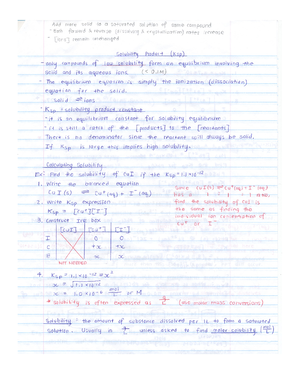 Add more solid to a saturated solution of same compound
both forward & reverse (dissolving & crystallization) rates increase
[ions] remain unchanged
Solubility Product (Ksp)
- Many compounds of low solubility form an equilibrium involving the
solid and its aqueous ions. (< 0.1M)
- The equilibrium equation is simply the ionization (dissociation)
equation for the solid.
solid ⇌ ions
- Ksp: solubility product constant
- it is an equilibrium constant for solubility equilibrium
- it is still a ratio of the [products] to the [reactants]
- There is no denominator since the reactant will always be solid.
If Ksp is large this implies high solubility.
Calculating Solubility
Ex: Find the solubility of CuI if the Ksp =
1. Write the balanced equation
CuI (s) ⇌ Cu⁺(aq) + I⁻(aq)
2. Write Ksp expression
Ksp = [Cu⁺][I⁻]
Since CuI(s) ⇌ Cu⁺(aq) + I⁻(aq)
find the solubility of (s) is
the same as finding the
individual ion concentration of
Cu⁺ or I⁻
3. Construct ICE box
[CuI] [Cu⁺] [I⁻]
I 0 0
C +x +x
E x x
NOT NEEDED
Ksp = = x²
x =
x = mol/L or M
* Solubility is often expressed as g/L (use molar mass conversions)
Solubility: the amount of substance dissolved per L to form a saturated
solution. Usually in g/L unless asked to find molar solubility (mol/L)